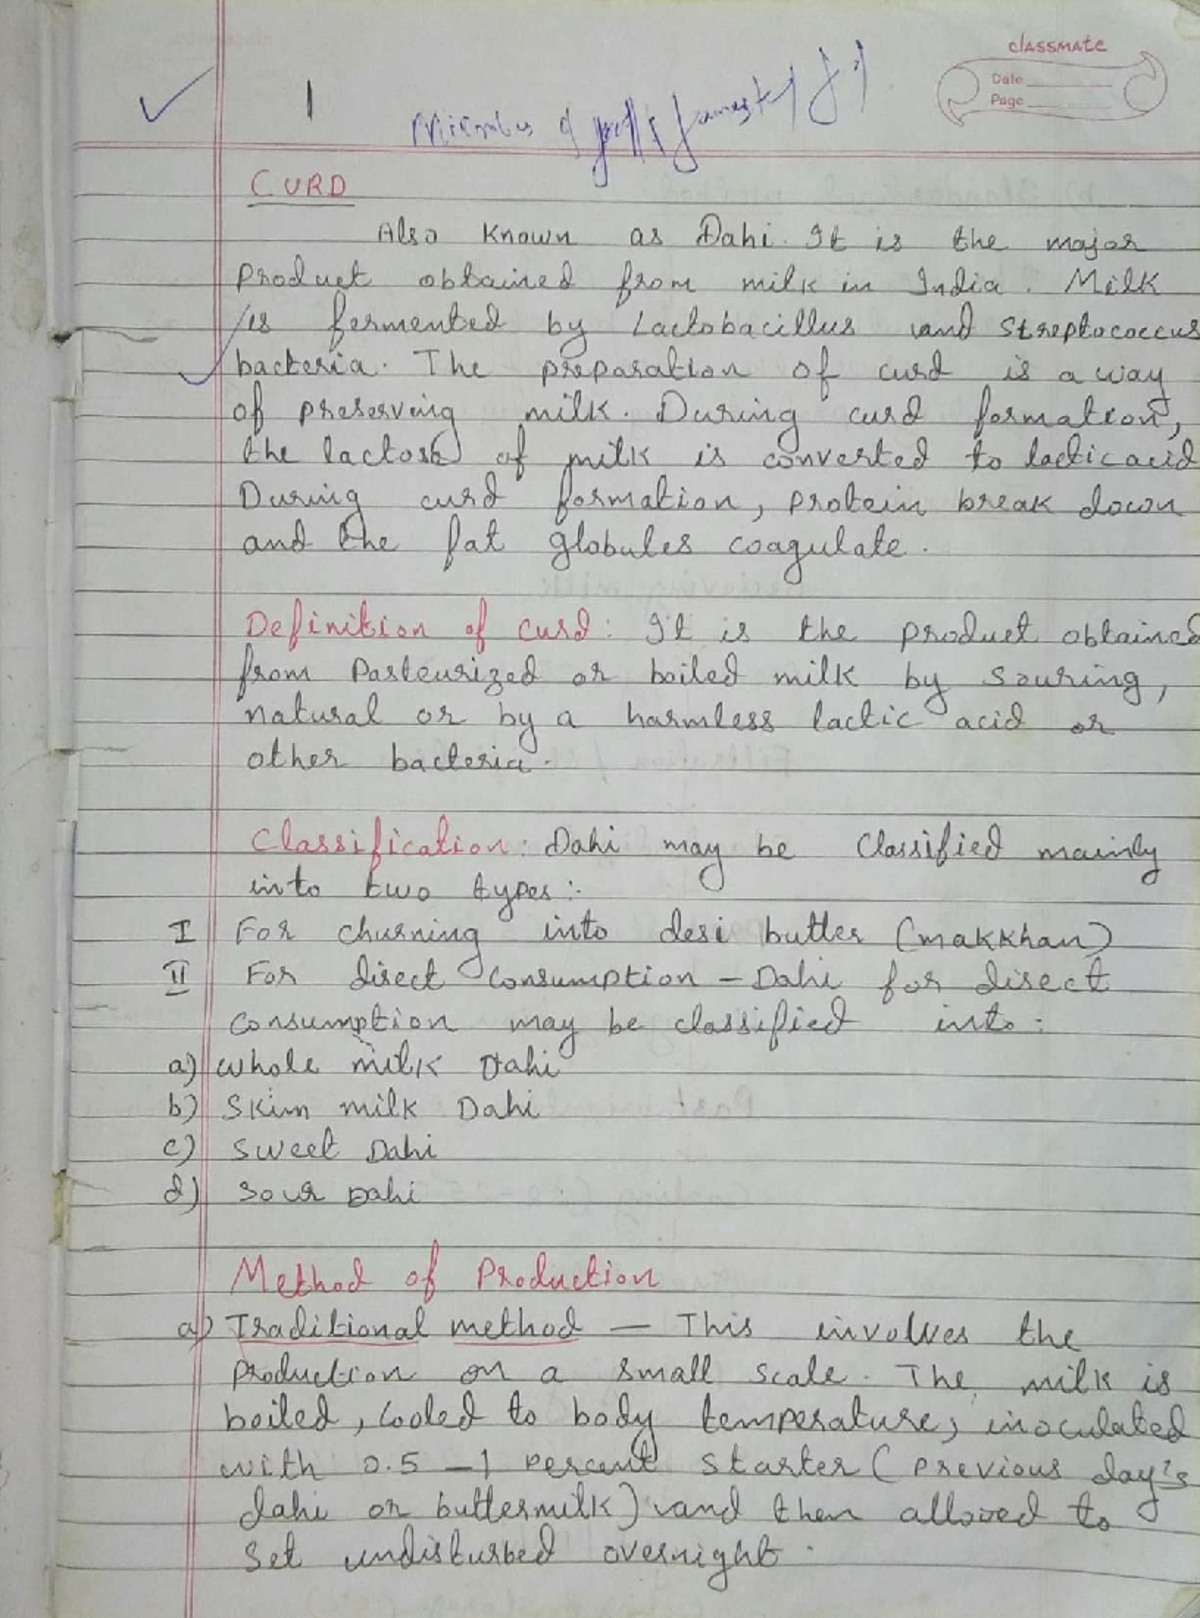 classmate
Date
Page
1
of
CURD
Also known as Dahi. It is the major
product obtained from milk in India. Milk
is fermented by Lactobacillus and Streptococcus
bacteria. The preparation of curd is a way
of preserving milk. During curd formation,
the lactose of milk is converted to lactic acid
During curd formation, protein break down
and the fat globules coagulate.
Definition of curd: It is the product obtained
from Pasteurized or boiled milk by souring,
natural or by a harmless lactic acid or
other bacteria.
Classification: Dahi may be classified mainly
into two types:-
I For churning into desi butter (makkhan)
II For direct consumption - Dahi for direct
consumption may be classified into:
a) whole milk Dahi
b) Skim milk Dahi
c) Sweet Dahi
d) Sour Dahi
Method of Production
a) Traditional method — This involves the
production on a small scale. The milk is
boiled, cooled to body temperature, inoculated
with 0.5 - 1 percent starter (previous day's
dahi or buttermilk) and then allowed to
set undisturbed overnight.